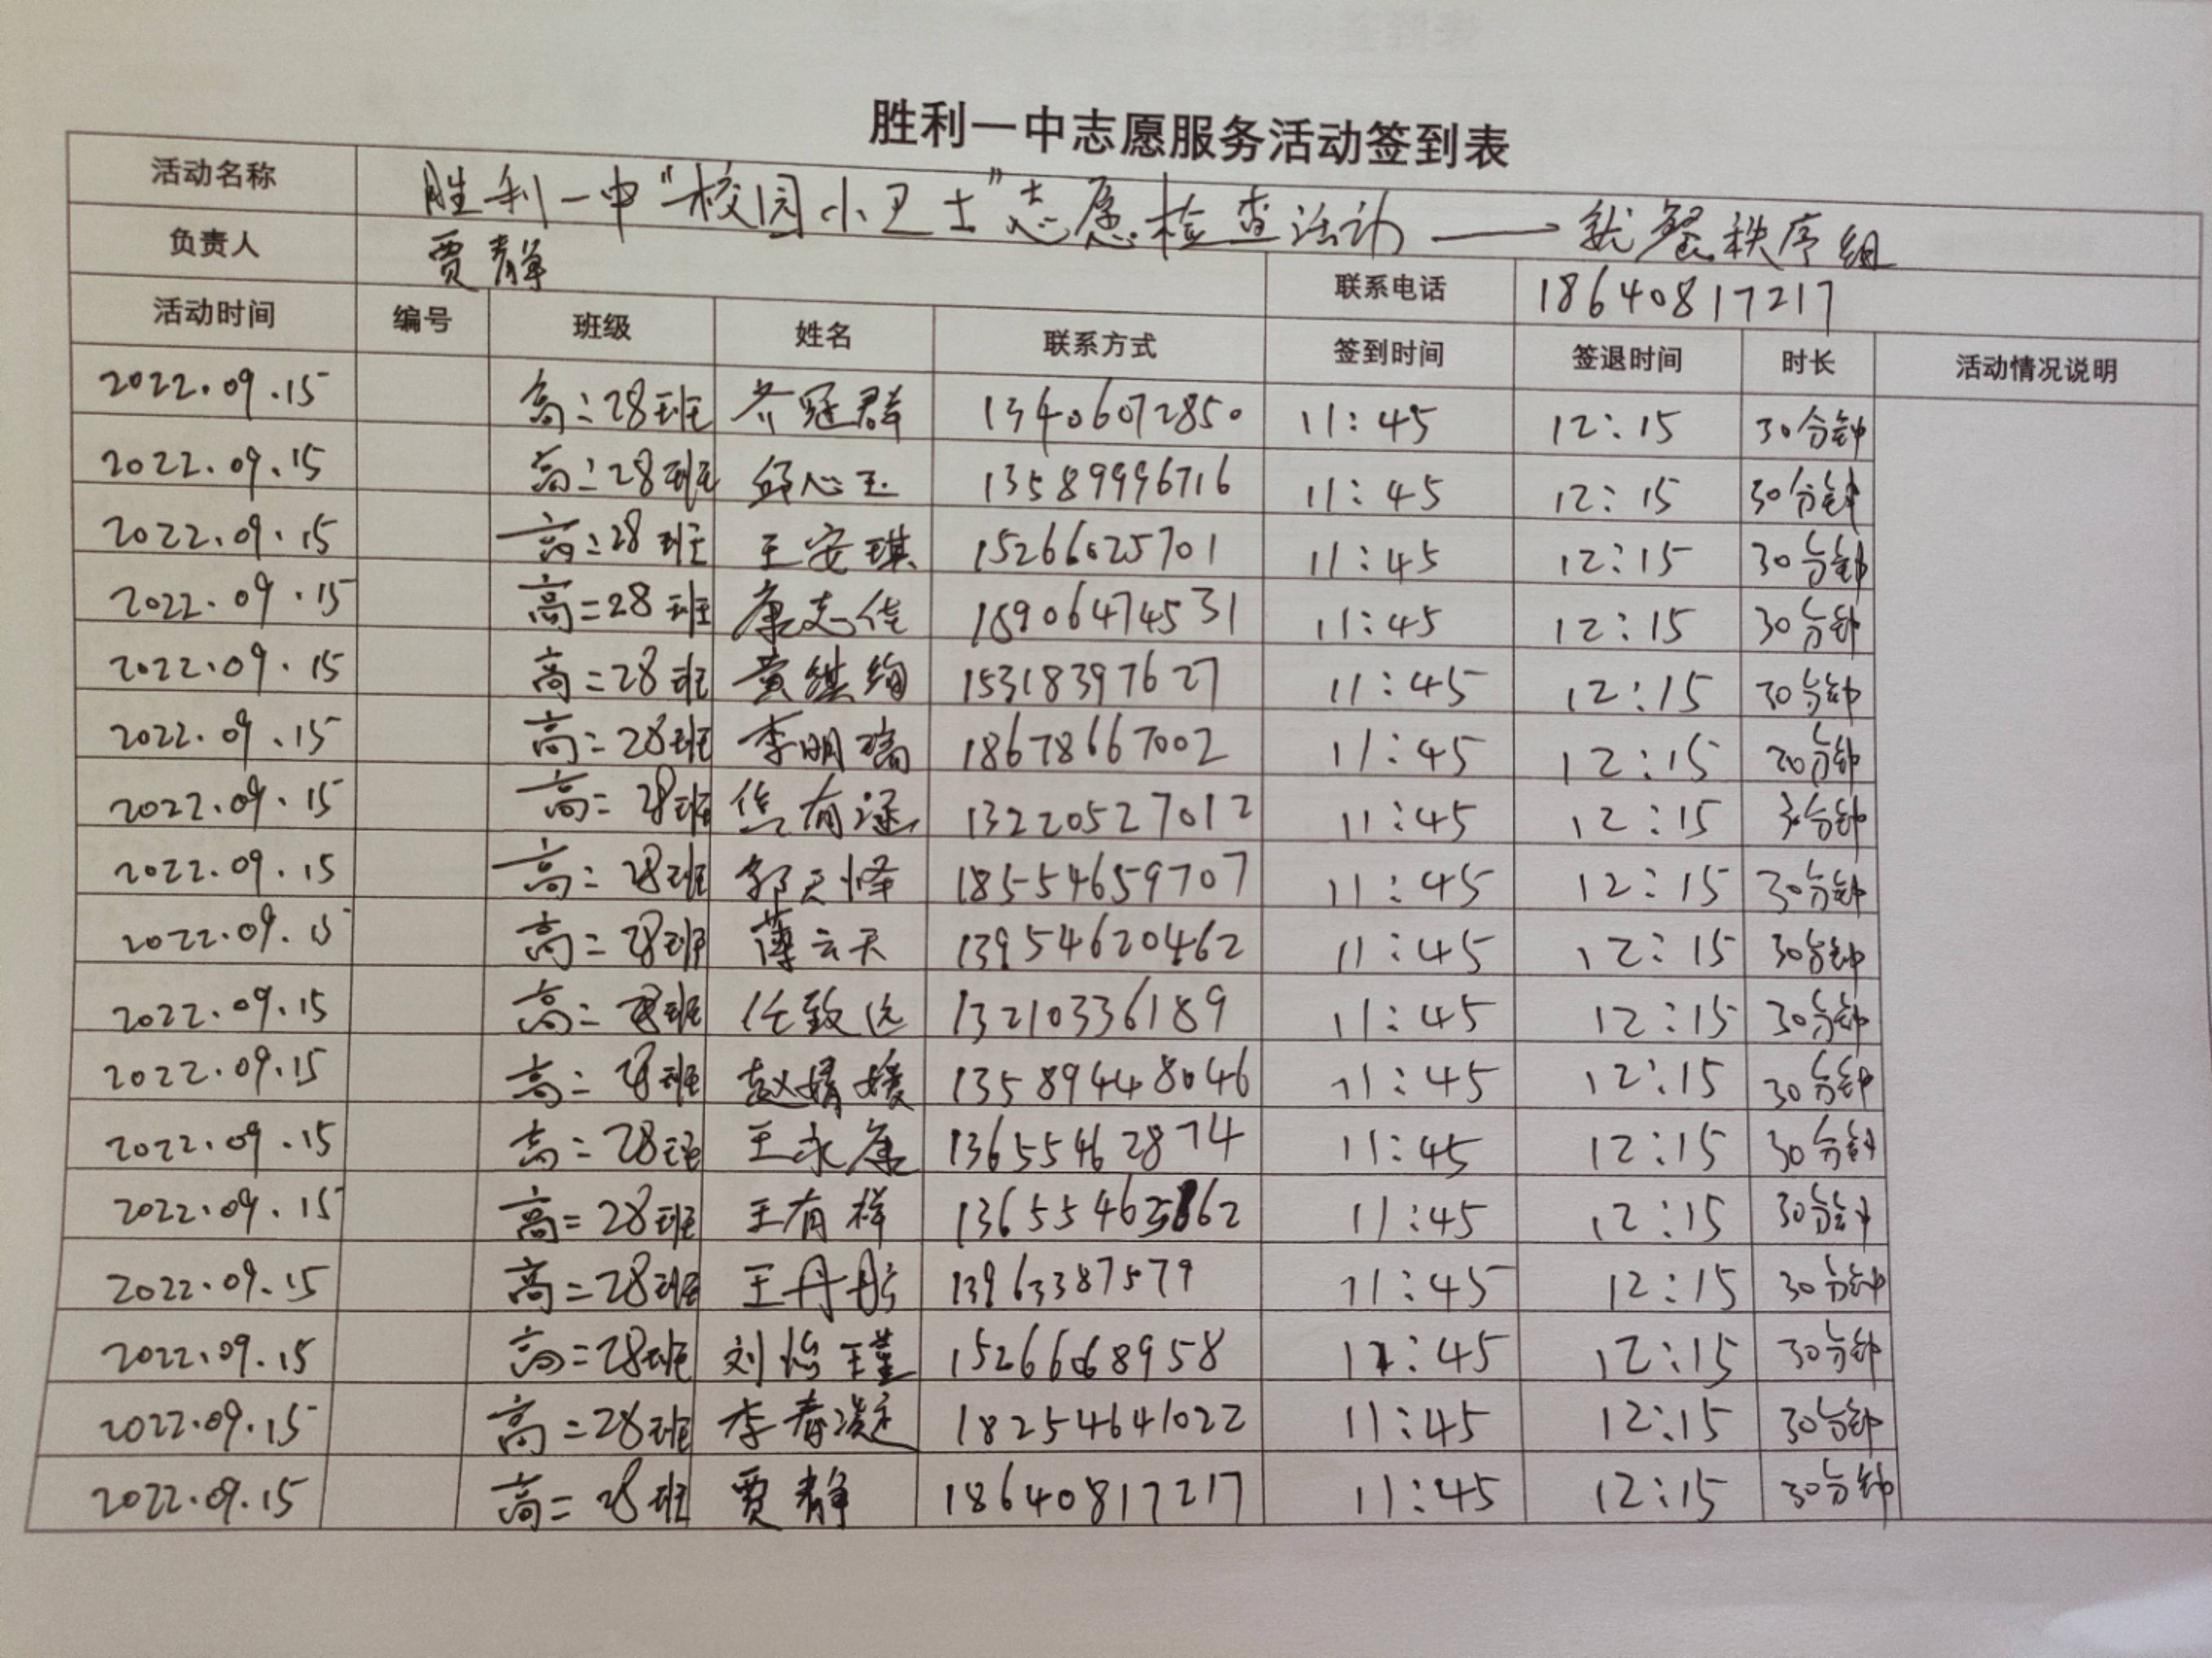 胜利一中志愿服务活动签到表
活动名称 胜利一中"校园小卫士"志愿检查活动——就餐秩序组
负责人 贾静 联系电话 18640817217
活动时间 编号 班级 姓名 联系方式 签到时间 签退时间 时长 活动情况说明
2022.09.15 高二28班 冠群 13406072850 11:45 12:15 30分钟
2022.09.15 高二28班 邱心玉 13589996716 11:45 12:15 30分钟
2022.09.15 高二28班 王安琪 15266025701 11:45 12:15 30分钟
2022.09.15 高二28班 康志佳 15906474531 11:45 12:15 30分钟
2022.09.15 高二28班 黄绚 15318397627 11:45 12:15 30分钟
2022.09.15 高二28班 李明璃 18678667002 11:45 12:15 30分钟
2022.09.15 高二28班 有涵 13220527012 11:45 12:15 30分钟
2022.09.15 高二28班 郭天怿 18554659707 11:45 12:15 30分钟
2022.09.15 高二28班 薄云天 13954620462 11:45 12:15 30分钟
2022.09.15 高二28班 任致远 13210336189 11:45 12:15 30分钟
2022.09.15 高二28班 赵婧媛 13589448046 11:45 12:15 30分钟
2022.09.15 高二28班 王永康 13655462874 11:45 12:15 30分钟
2022.09.15 高二28班 王有祥 11:45 12:15 30分钟
2022.09.15 高二28班 王丹彤 13963387579 11:45 12:15 30分钟
2022.09.15 高二28班 刘怡瑾 15266068958 11:45 12:15 30分钟
2022.09.15 高二28班 李春凝 18254641022 11:45 12:15 30分钟
2022.09.15 高二28班 贾静 18640817217 11:45 12:15 30分钟